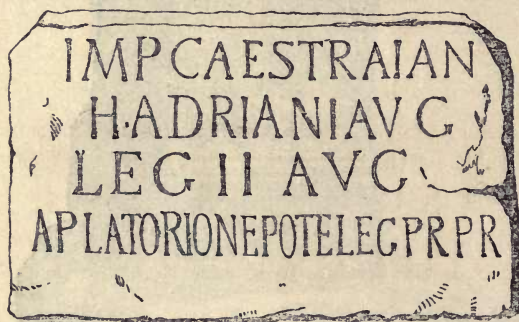 IMP CAES TRAIAN
H·ADRIANI AVG
LEG II AVG
A PLATORIO NEPOTE LEG PR PR